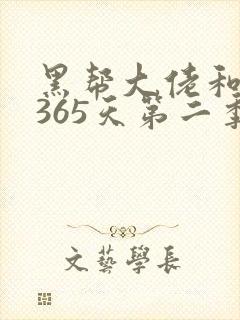 黑帮大佬和
365天第二季
文藝學長